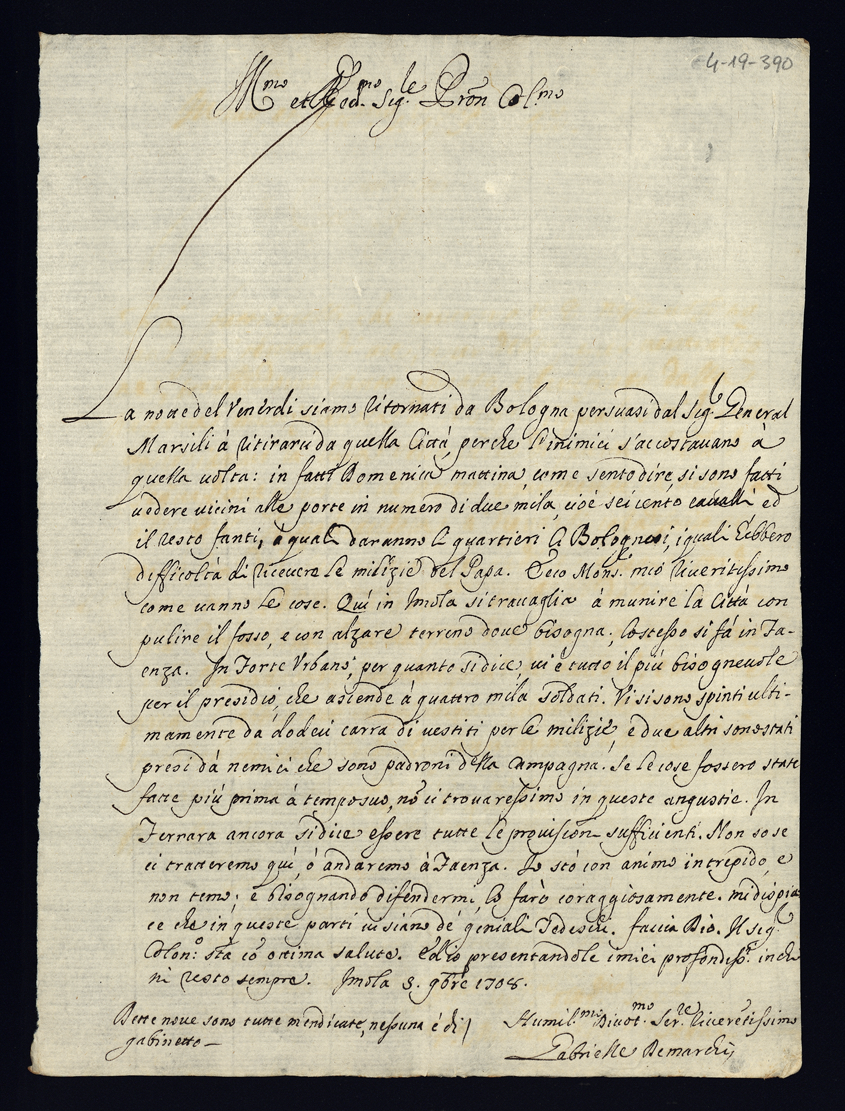 4-19-390
Ill.mo et Rev.mo Sig.le Pron Col.mo
La notte del Venerdi siamo ritornati da Bologna persuasi dal Sig.r General
Marsili à ritirarci da quella Città, perche l'inimici s'accostavano à
quella volta: in fatti Domenica mattina, come sento dire, si sono fatti
vedere vicini alle porte in numero di due mila, cioé seicento cavalli ed
il resto fanti, a quali daranno le quartieri li Bolognesi, i quali ebbero
difficoltà di ricevere le milizie del Papa. Ecco Mons.re mio riveritissimo
come vanno le cose. Quì in Imola si travaglia à munire la Città con
pulire il fosso, e con alzare terreno dove bisogna; lo stesso si fà in Fa-
enza. In Forte Urbano, per quanto si dice, vi è tutto il più bisognevole
per il presidio, che asiende à quattro mila soldati. Vi si sono spinti ulti-
mamente da dodeci carra di vestiti per le milizie, e due altri sono stati
presi dà nemici che sono padroni della Campagna. Se le cose fossero state
fatte più prima à tempo suo, nō ci trovaressimo in queste angustie. In
Ferrara ancora si dice essere tutte le provision sufficienti. Non so se
ci tratteremo quì, ò andaremo à Faenza. Io stò con animo intrepido, e
non temo; e bisognando difendermi, lo farò coraggiosamente. mi dispia
ce che in queste parti vi siano de' geniali Tedeschi. faccia Dio. Il sig.r
Colon.o stà cō ottima salute. Ed io presentandole i miei profondiss.i inchi
ni resto sempre. Imola 5. 9bre 1708.
Dette nove sono tutte mendicate, nessuna è di
gabinetto —
Humil.mo Divot.mo Ser.re Riveretissimo
Gabrielle Demarchi